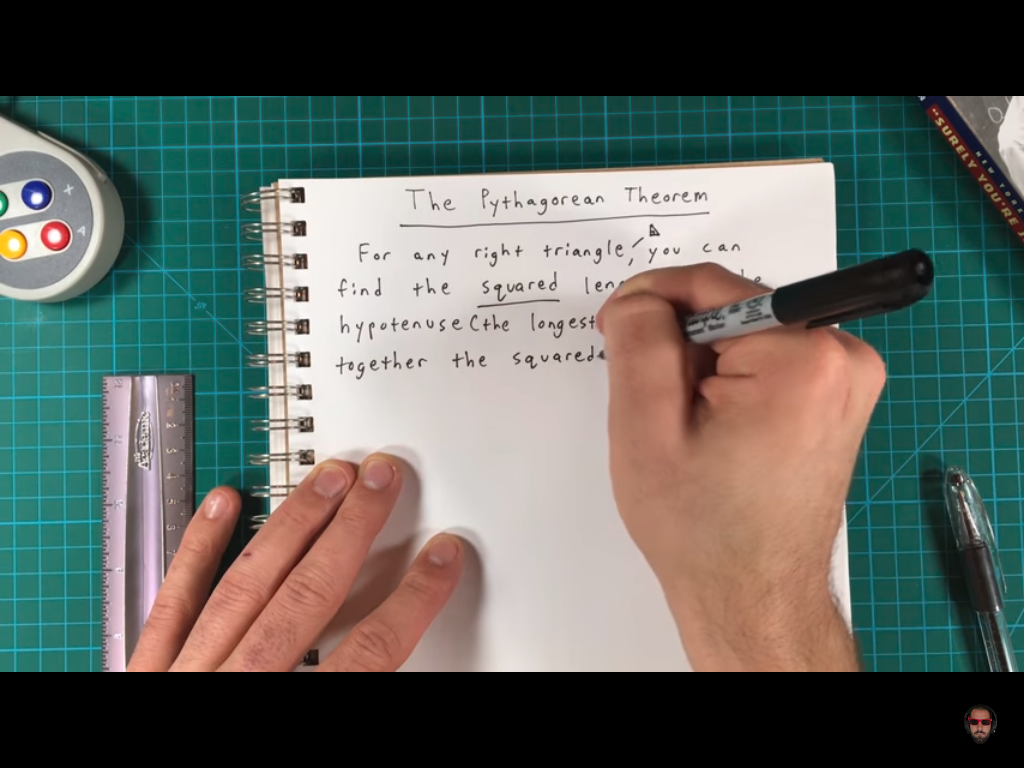 The Pythagorean Theorem
For any right triangle, you can
find the squared
hypotenuse (the longest
together the squared
"SURELY YOU'RE J
NEW YORK